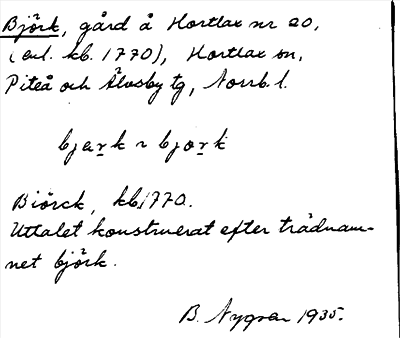 Björk, gård å Hortlax nr 20,
(enl. kb. 1770), Hortlax sn,
Piteå och Älvsby tg, Norrb. l.
bjærk ~ bjork
Biörck, kb 1770.
Uttalet konstruerat efter trädnam-
net björk.
B. Nygren 1935.